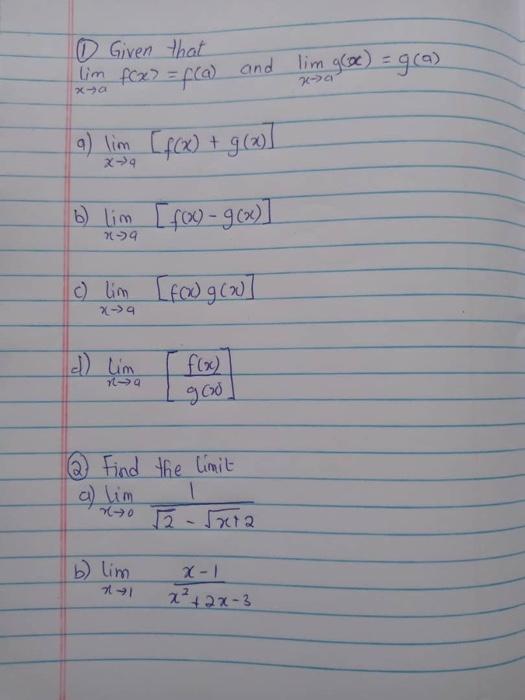 ① Given that
lim x→a f(x) = f(a) and lim x→a g(x) = g(a)
a) lim x→a [f(x) + g(x)]
b) lim x→a [f(x) - g(x)]
c) lim x→a [f(x) g(x)]
d) lim x→a [f(x)/g(x)]
② Find the limit
a) lim x→0 1/(√2 - √x+2)
b) lim x→1 (x-1)/(x²+2x-3)